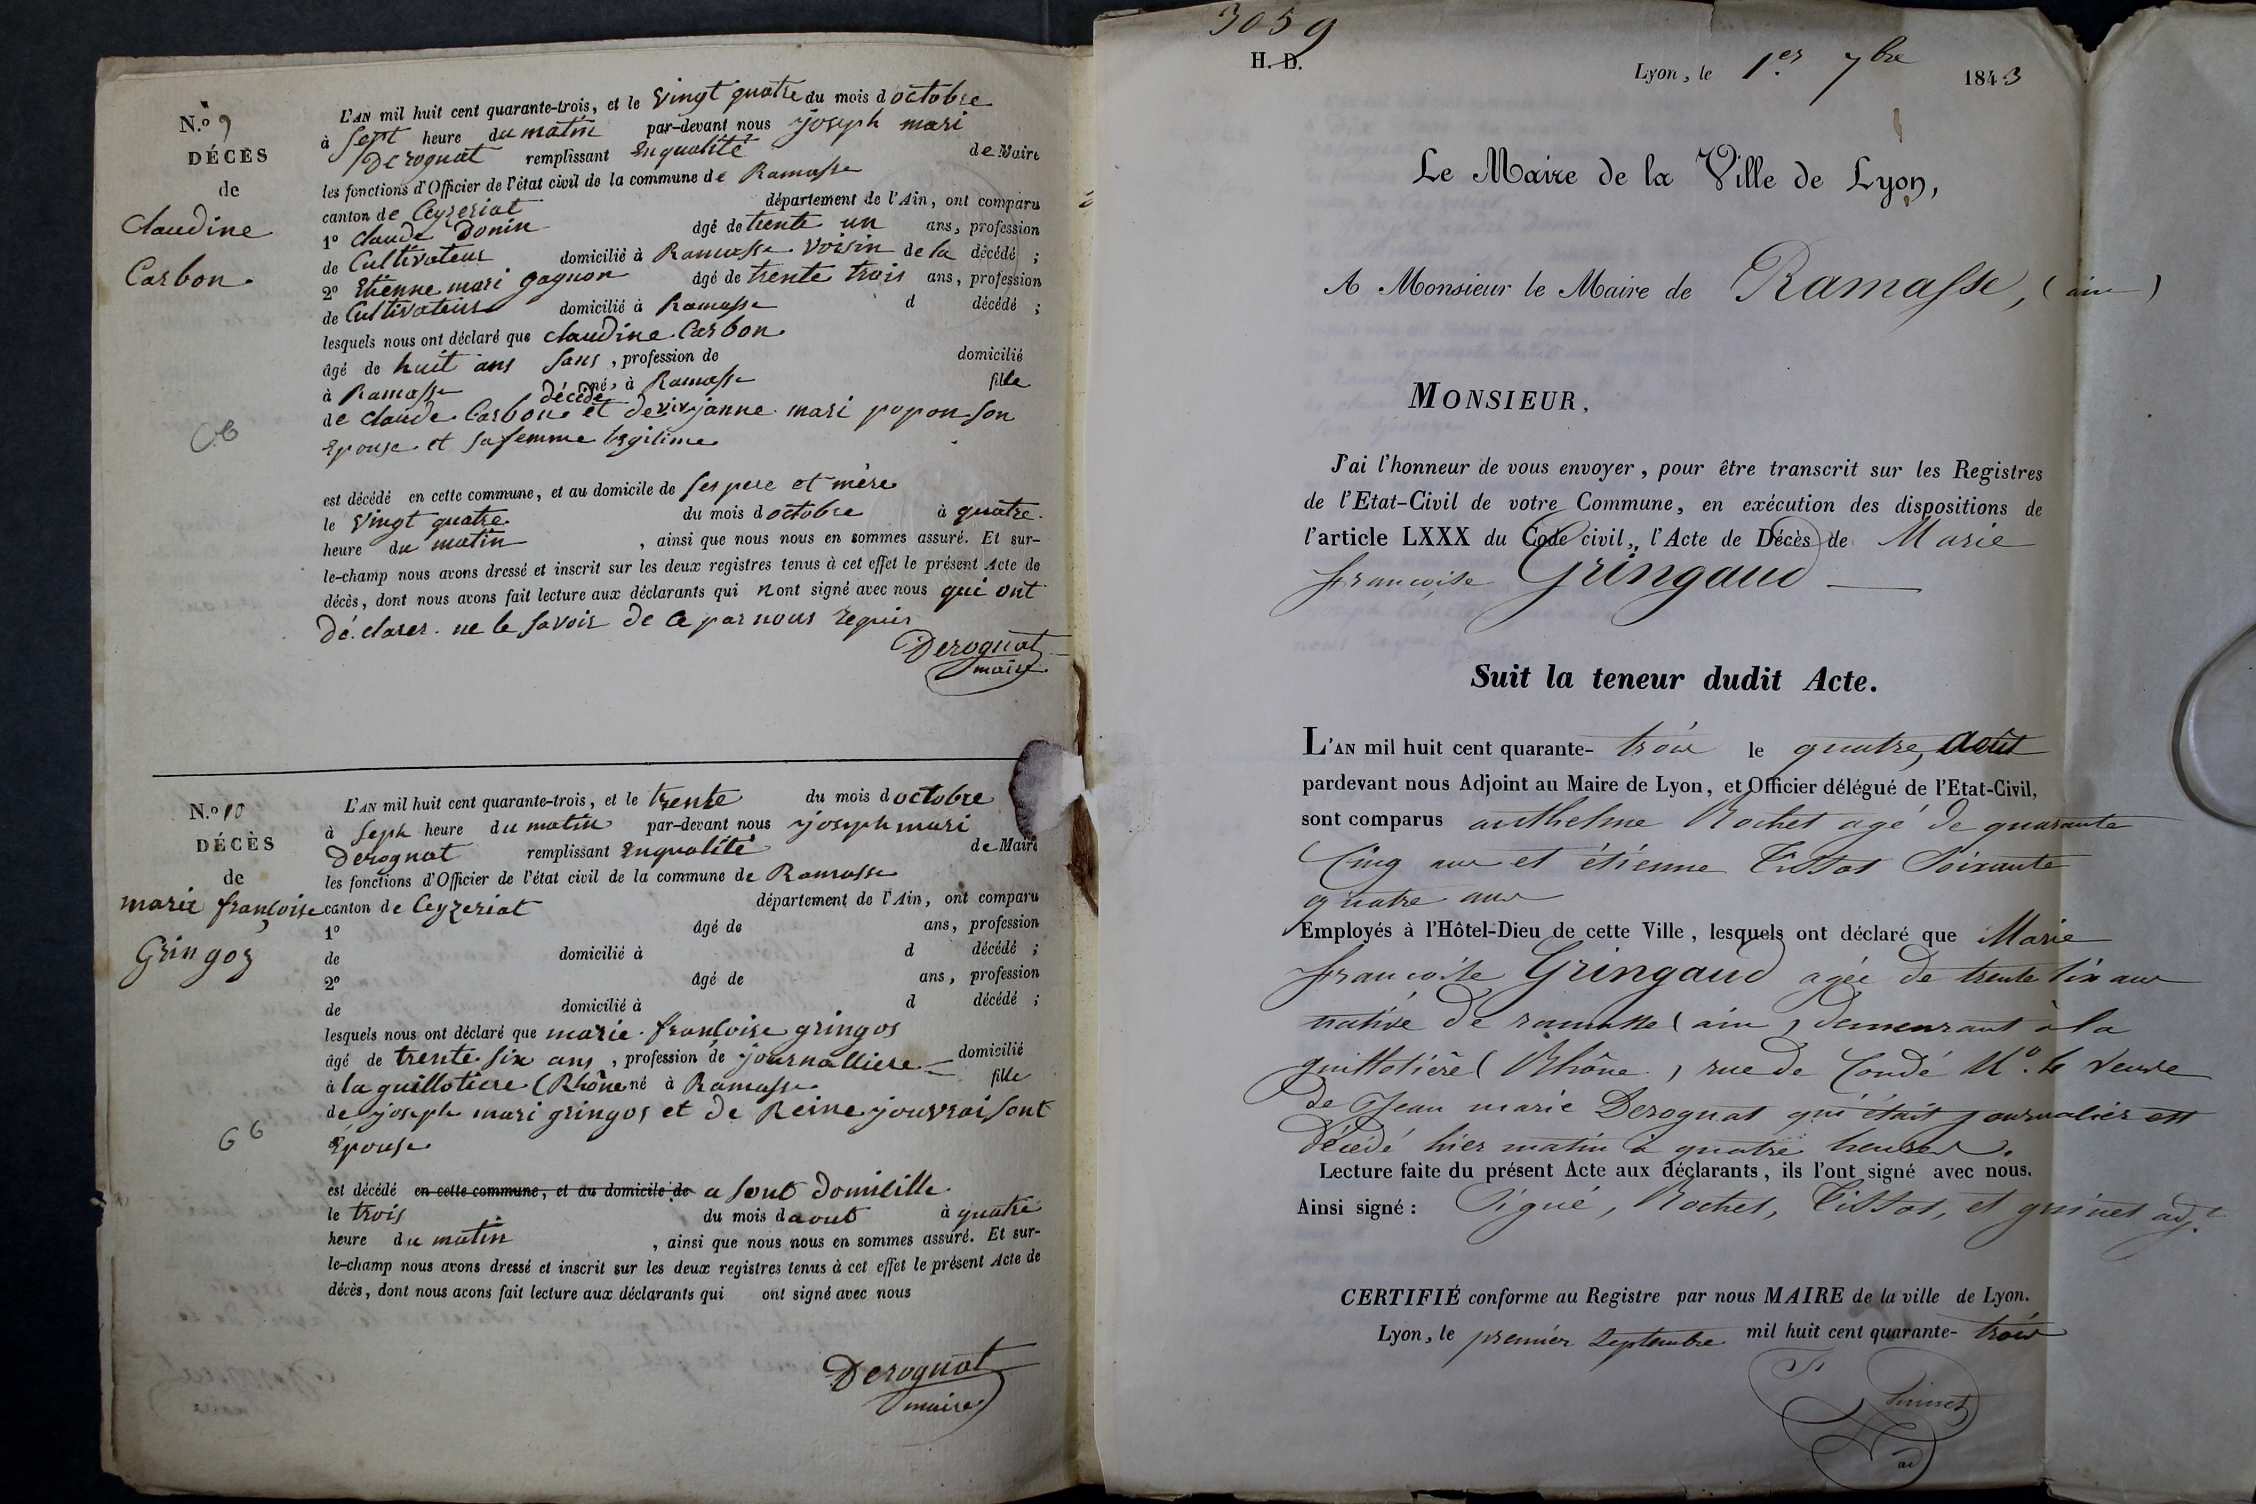 N.o 9
DÉCÈS
de
Claudine
Carbon.
L'AN mil huit cent quarante-trois, et le vingt quatre du mois d octobre
à sept heure du matin par-devant nous joseph mari
Derognat remplissant enqualité de Maire
les fonctions d'Officier de l'état civil de la commune de Ramasse
canton de Ceyzeriat département de l'Ain, ont comparu
1o Claude Donin âgé de trente un ans, profession
de Cultivateur domicilié à Ramasse voisin de la décédé ;
2o Etienne mari gagnon âgé de trente trois ans, profession
de Cultivateur domicilié à Ramasse d décédé ;
lesquels nous ont déclaré que claudine Carbon
âgé de huit ans sans , profession de domicilié
à Ramasse décédé né, à Ramasse fille
de claude Carbon et de janne mari popon son
Epouse et sa femme legitime
est décédé en cette commune, et au domicile de ses pere et mère
le vingt quatre du mois d octobre à quatre
heure du matin , ainsi que nous nous en sommes assuré. Et sur-
le-champ nous avons dressé et inscrit sur les deux registres tenus à cet effet le présent Acte de
décès, dont nous avons fait lecture aux déclarants qui n ont signé avec nous qui ont
dé clarer ne le savoir de ce par nous requis
Derognat
maire
N.o 10
DÉCÈS
de
marie françoise
Gringoz
66
L'AN mil huit cent quarante-trois, et le trente du mois d octobre
à seph heure du matin par-devant nous joseph mari
Derognat remplissant enqualité de Maire
les fonctions d'Officier de l'état civil de la commune de Ramasse
canton de Ceyzeriat département de l'Ain, ont comparu
1o âgé de ans, profession
de domicilié à d décédé ;
2o âgé de ans, profession
de domicilié à d décédé ;
lesquels nous ont déclaré que marie françoise gringos
âgé de trente six ans , profession de journalliere domicilié
à la guillotiere (Rhône né à Ramasse fille
de joseph mari gringos et de Reine jouvrai sont
Epouse
est décédé en cette commune, et au domicile de a sont domicille
le trois du mois d aout à quatre
heure du matin , ainsi que nous nous en sommes assuré. Et sur-
le-champ nous avons dressé et inscrit sur les deux registres tenus à cet effet le présent Acte de
décès, dont nous avons fait lecture aux déclarants qui ont signé avec nous
Derognat
maire
3059
H. D.
Lyon, le 1.er 7bre 1843
Le Maire de la Ville de Lyon,
A Monsieur le Maire de Ramasse, (ain)
MONSIEUR,
J'ai l'honneur de vous envoyer, pour être transcrit sur les Registres
de l'Etat-Civil de votre Commune, en exécution des dispositions de
l'article LXXX du Code civil, l'Acte de Décès de Marie
françoise Gringaud
Suit la teneur dudit Acte.
L'AN mil huit cent quarante- trois le quatre, Août
pardevant nous Adjoint au Maire de Lyon, et Officier délégué de l'Etat-Civil,
sont comparus anthelme Rochet agé de quarante
Cinq ans et étienne Tissot Soixante
quatre ans
Employés à l'Hôtel-Dieu de cette Ville, lesquels ont déclaré que Marie
françoise Gringaud agée de trente six ans
native de ramasse (ain) demeurant à la
guillotière (Rhône) rue de Condé No. veuve
de Jean marie Derognat qui était journalier est
décédé hier matin à quatre heures.
Lecture faite du présent Acte aux déclarants, ils l'ont signé avec nous.
Ainsi signé : Signé, Rochet, Tissot, et guinet adj.t
CERTIFIÉ conforme au Registre par nous MAIRE de la ville de Lyon.
Lyon, le premier Septembre mil huit cent quarante- trois